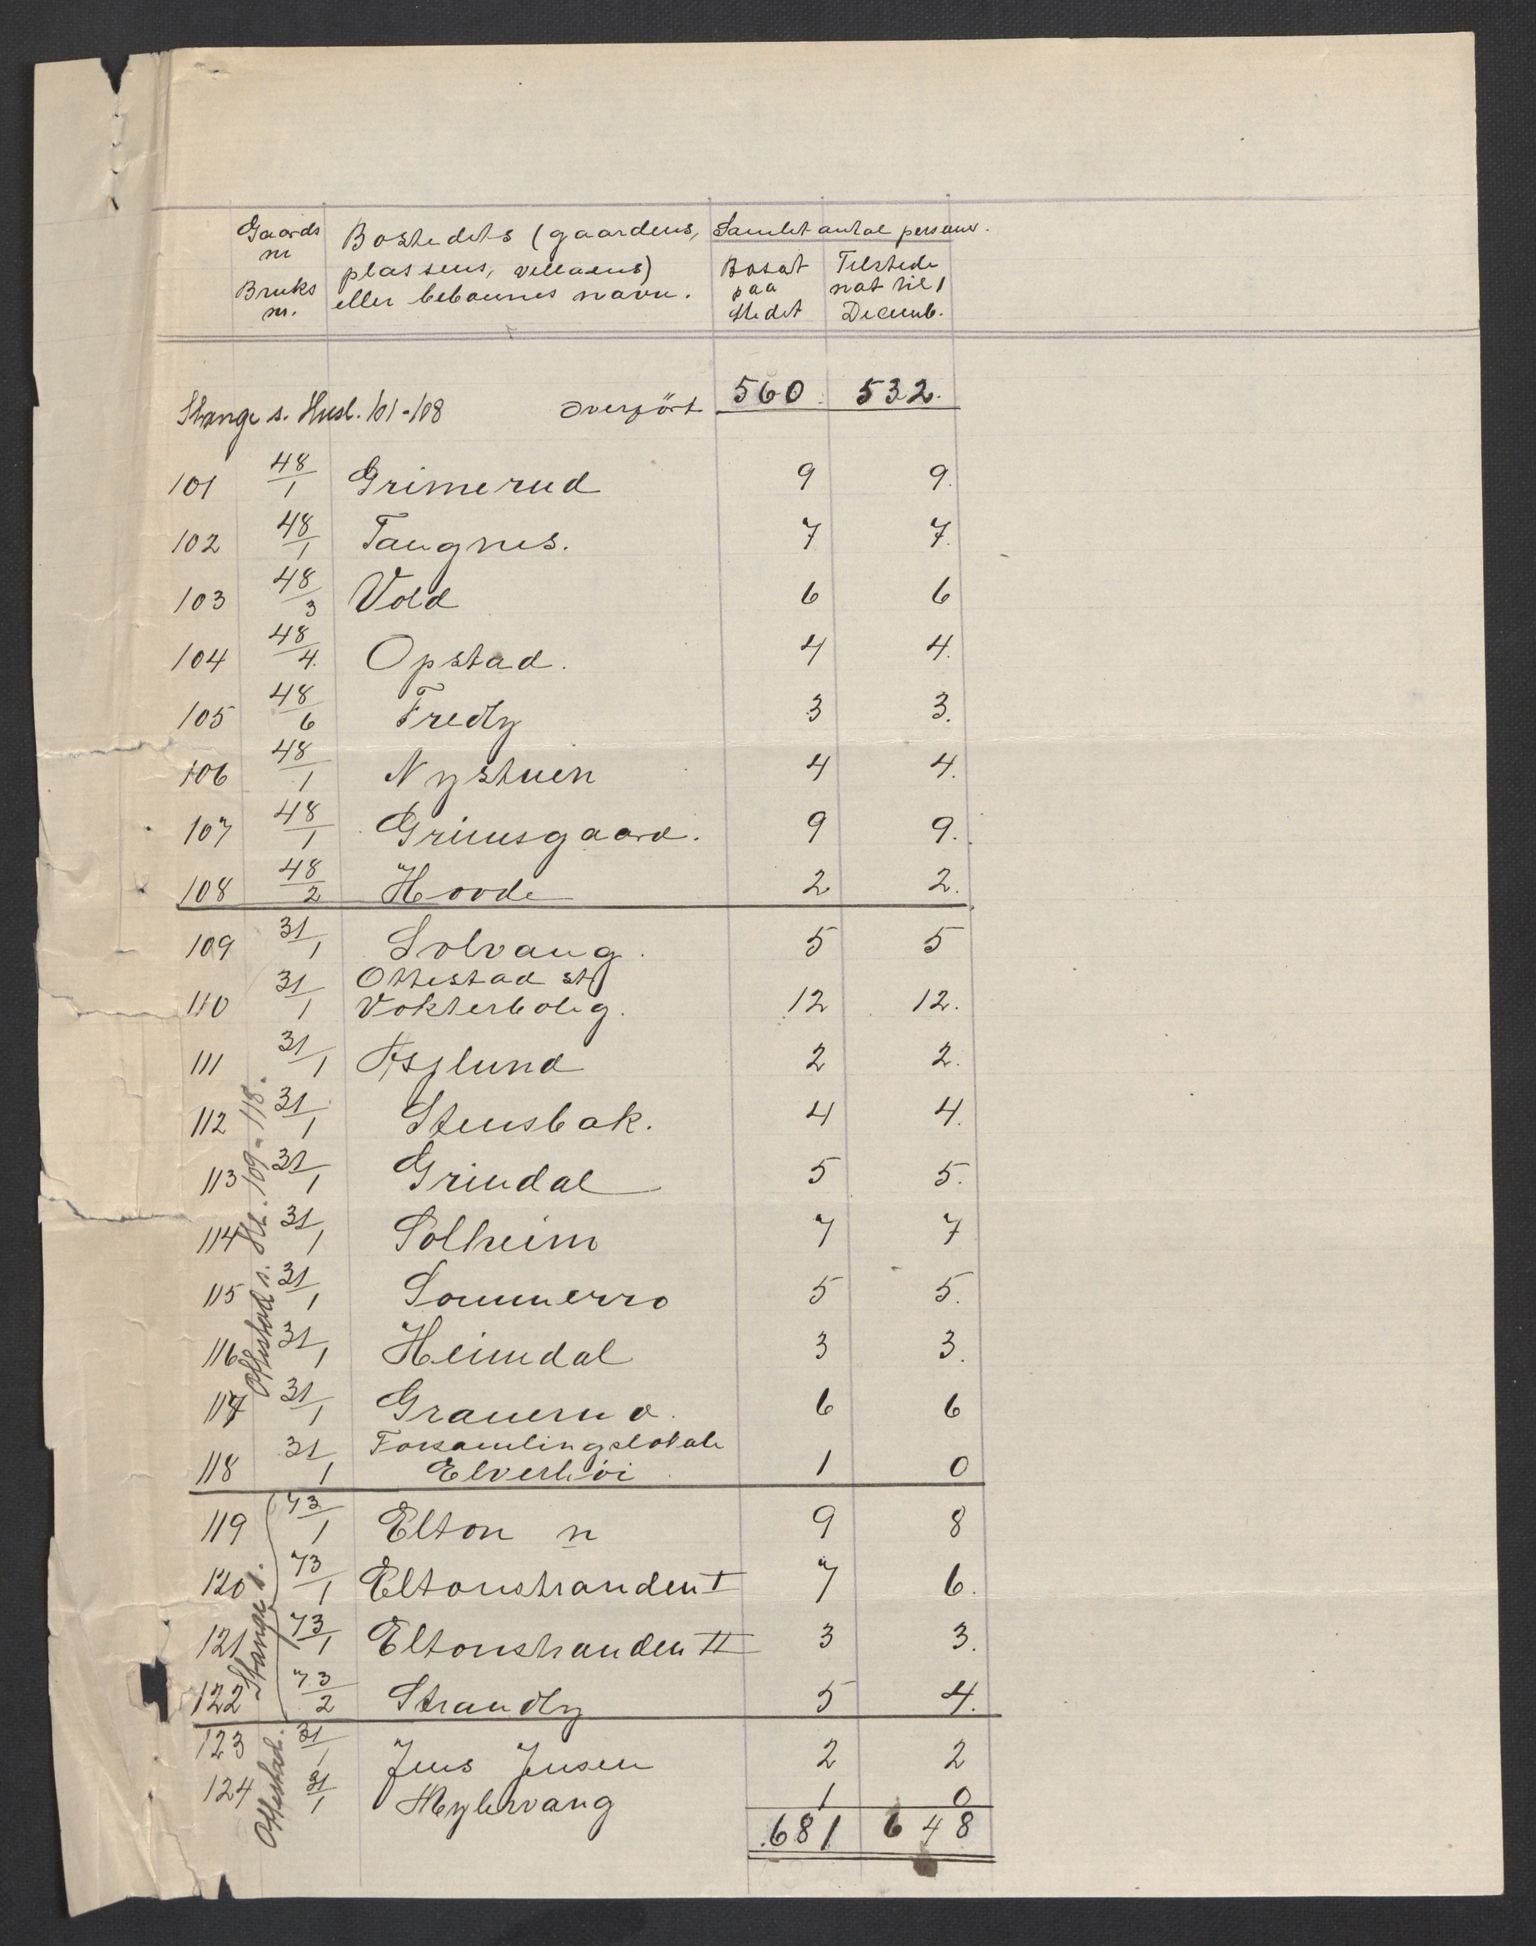 Gaards Bostedets (gaardens, Samlet antal personer.
nr plassens, villaens) Bosat Tilstede
Bruks eller bebovnes navn. paa nat til 1
nr. Stedet Decemb.
Stange s. Husl. 101-108 overført 560 532.
101 48/1 Grimerud 9 9.
102 48/1 Tangnes. 7 7.
103 48/3 Vold 6 6
104 48/4. Opstad. 4 4.
105 48/6 Fredly 3 3.
106 48/1 Nystuen 4 4.
107 48/1 Grimsgaard. 9 9.
108 48/2 Hovde 2 2.
109 31/1 Solvang. 5 5
110 31/1 Ottestad st Vokterbolig. 12 12.
111 31/1 Asylund 2 2.
112 31/1 Stensbak. 4 4.
113 31/1 Grindal 5 5.
114 31/1 Solheim 7 7
115 31/1 Sommerro 5 5.
116 31/1 Heimdal 3 3.
117 31/1 Granerud. 6 6
118 31/1 Forsamlingslokale Elverhöi 1 0
Ottestad s. Hl. 109-118.
119 73/1 Elton n 9 8
120 73/1 Eltonstranden I 7 6.
121 73/1 Eltonstranden II 3 3.
122 73/2 Strandly 5 4.
Stange s.
123 31/1 Jens Jensen 2 2
124 31/1 1 0
Ottestad.
681 648